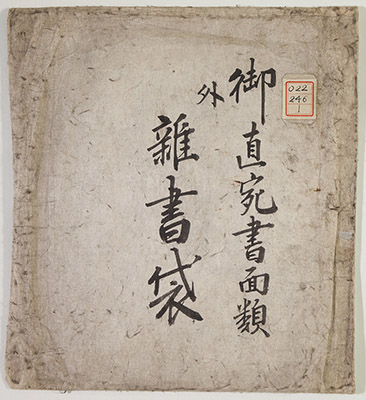 御直宛書面類
外
雜書袋
022
246
1